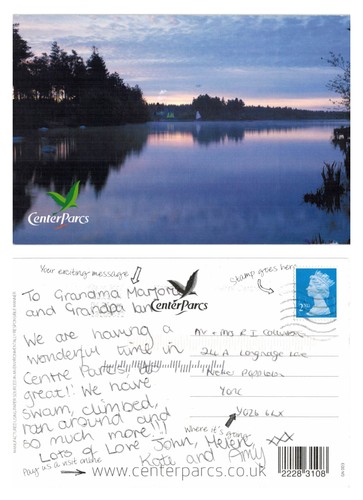 CenterParcs
Your exciting message
Stamp goes here
CenterParcs
To Grandma Marjorie
and Grandpa Ian
We are having a
wonderful time in
Centre Parcs, its
great!! We have
swam, climbed,
ran around and
so much more!!
Lots of Love John, Helen,
Kate and Amy
XXX
2nd
Mr + Mrs R I
24A
York
YO26 6LX
Where it's going
Pay us a visit online
www.centerparcs.co.uk
2228 3108